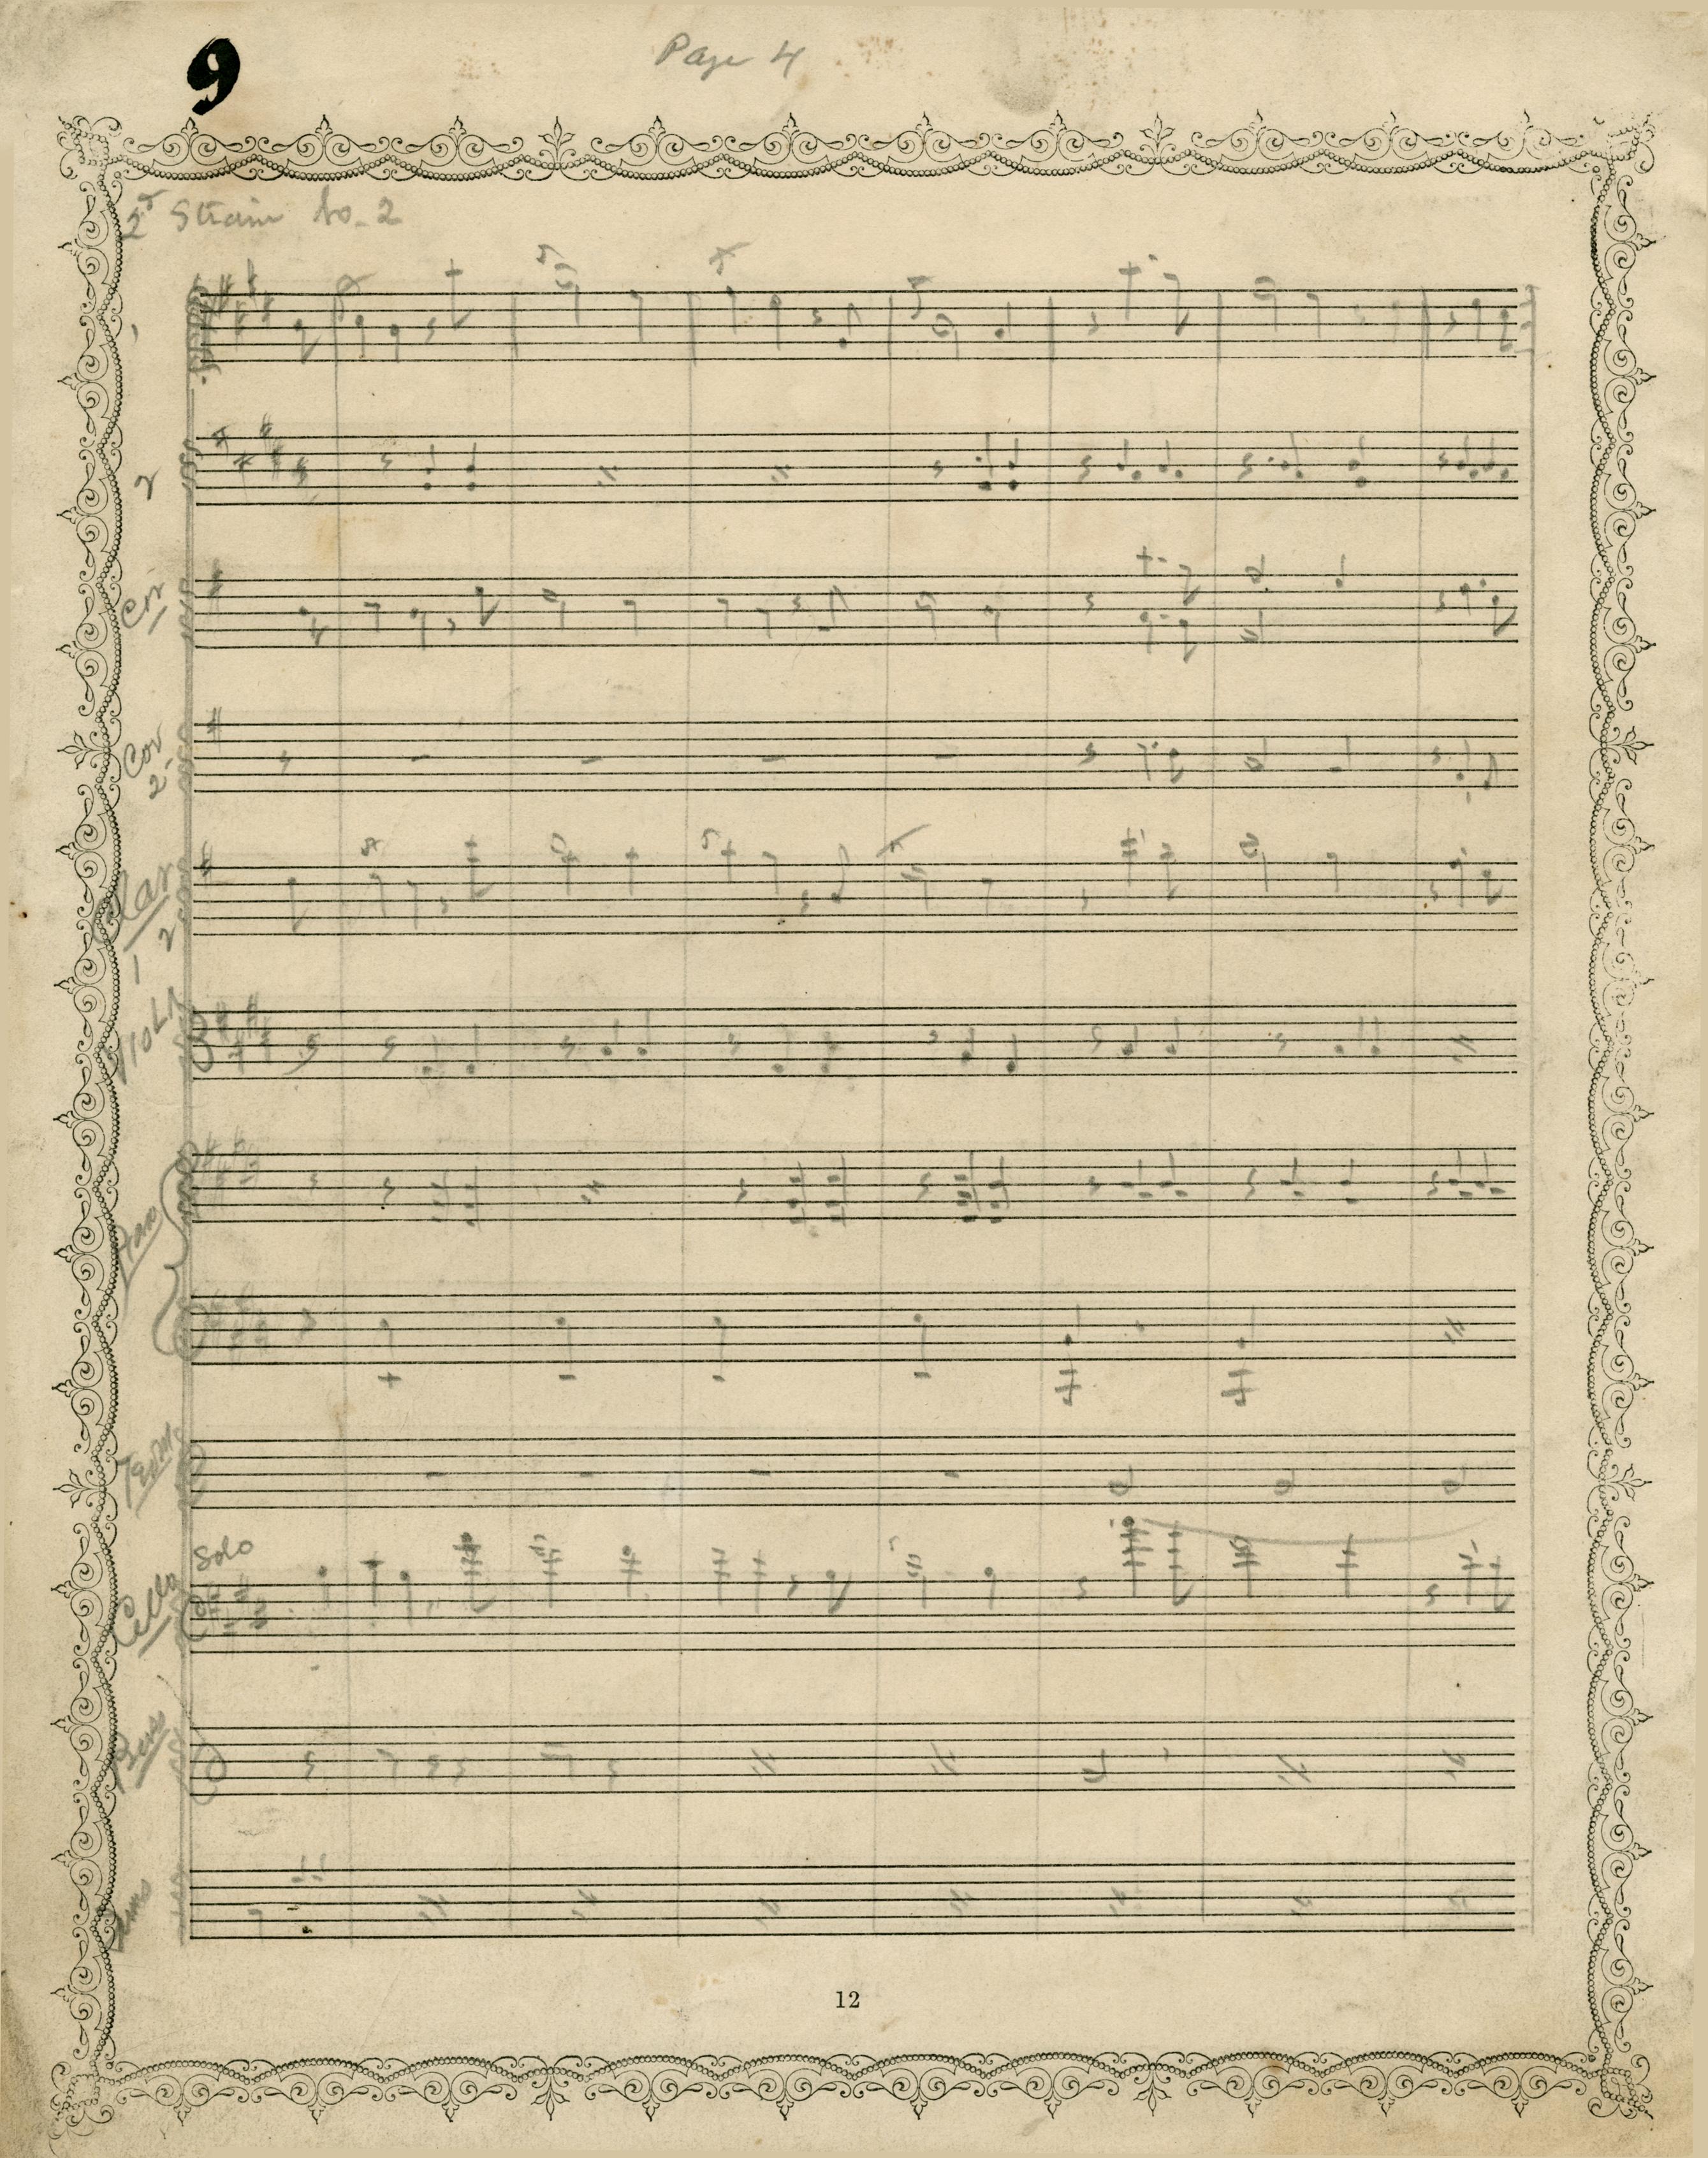 9
Page 4
2d Strain No. 2
1
2
Cor
Cor
2
Clar
1 2
VIOLA
Solo
Cello
Bass
12